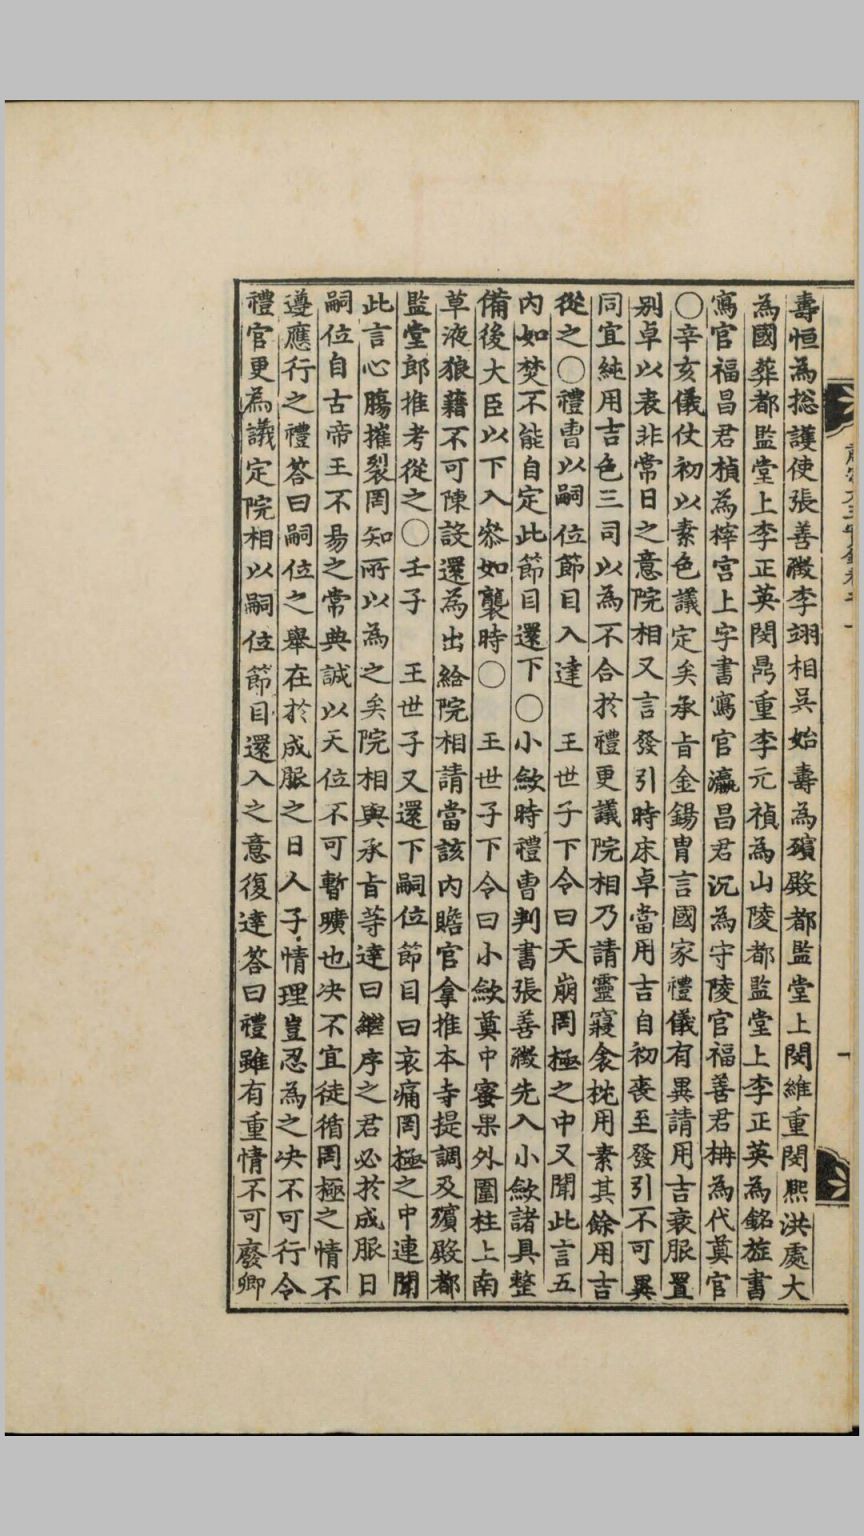 壽恒為摠護使張善瀓李翊相吳始壽為殯殿都監堂上閔維重閔熙洪處大
為國葬都監堂上李正英閔鼎重李元禎為山陵都監堂上李正英為銘旌書
寫官福昌君楨為梓宮上字書寫官瀛昌君沉為守陵官福善君柟為代奠官
○辛亥儀仗初以素色議定矣承旨金錫胄言國家禮儀有異請用吉衮服置
别卓以表非常日之意院相又言發引時床卓當用吉自初喪至發引不可異
同宜純用吉色三司以為不合於禮更議院相乃請靈寢衾枕用素其餘用吉
從之○禮曺以嗣位節目入達 王世子下令曰天崩罔極之中又聞此言五
內如焚不能自定此節目還下○小斂時禮曺判書張善瀓先入小斂諸具整
備後大臣以下入叅如襲時○ 王世子下令曰小斂奠中蜜果外圍柱上南
草液狼藉不可陳設還為出給院相請當該內贍官拿推本寺提調及殯殿都
監堂郞推考從之○壬子 王世子又還下嗣位節目曰哀痛罔極之中連聞
此言心膓摧裂罔知所以為之矣院相與承旨等達曰繼序之君必於成服日
嗣位自古帝王不易之常典誠以天位不可暫曠也决不宜徒循罔極之情不
遵應行之禮答曰嗣位之舉在於成服之日人子情理豈忍為之决不可行令
禮官更為議定院相以嗣位節目還入之意復達答曰禮雖有重情不可廢卿